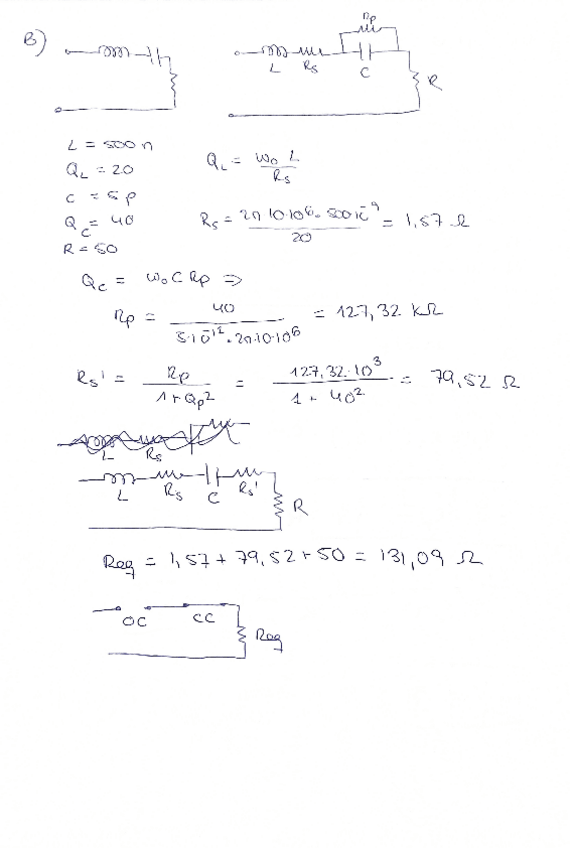 B)
Rp
L Rs C R
L = 500 n
QL = 20
C = 5 p
Qc = 40
R = 50
QL = W0 L / Rs
Rs = 2π 10·10⁶ · 500·10⁻⁹ / 20 = 1,57 Ω
Qc = W0 C Rp ⇒
Rp = 40 / 5·10⁻¹² · 2π·10·10⁶ = 127,32 kΩ
Rs' = Rp / 1+Qp² = 127,32·10³ / 1+40² = 79,52 Ω
L Rs
L Rs C Rs' R
Req = 1,57 + 79,52 + 50 = 131,09 Ω
OC CC Req